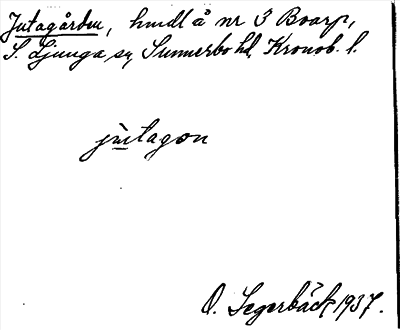 Jutagården, hmdl å nr 3 Boarp,
S. Ljunga sn, Sunnerbo hd, Kronob. l.
jùtagon
O. Segerbäck 1937.